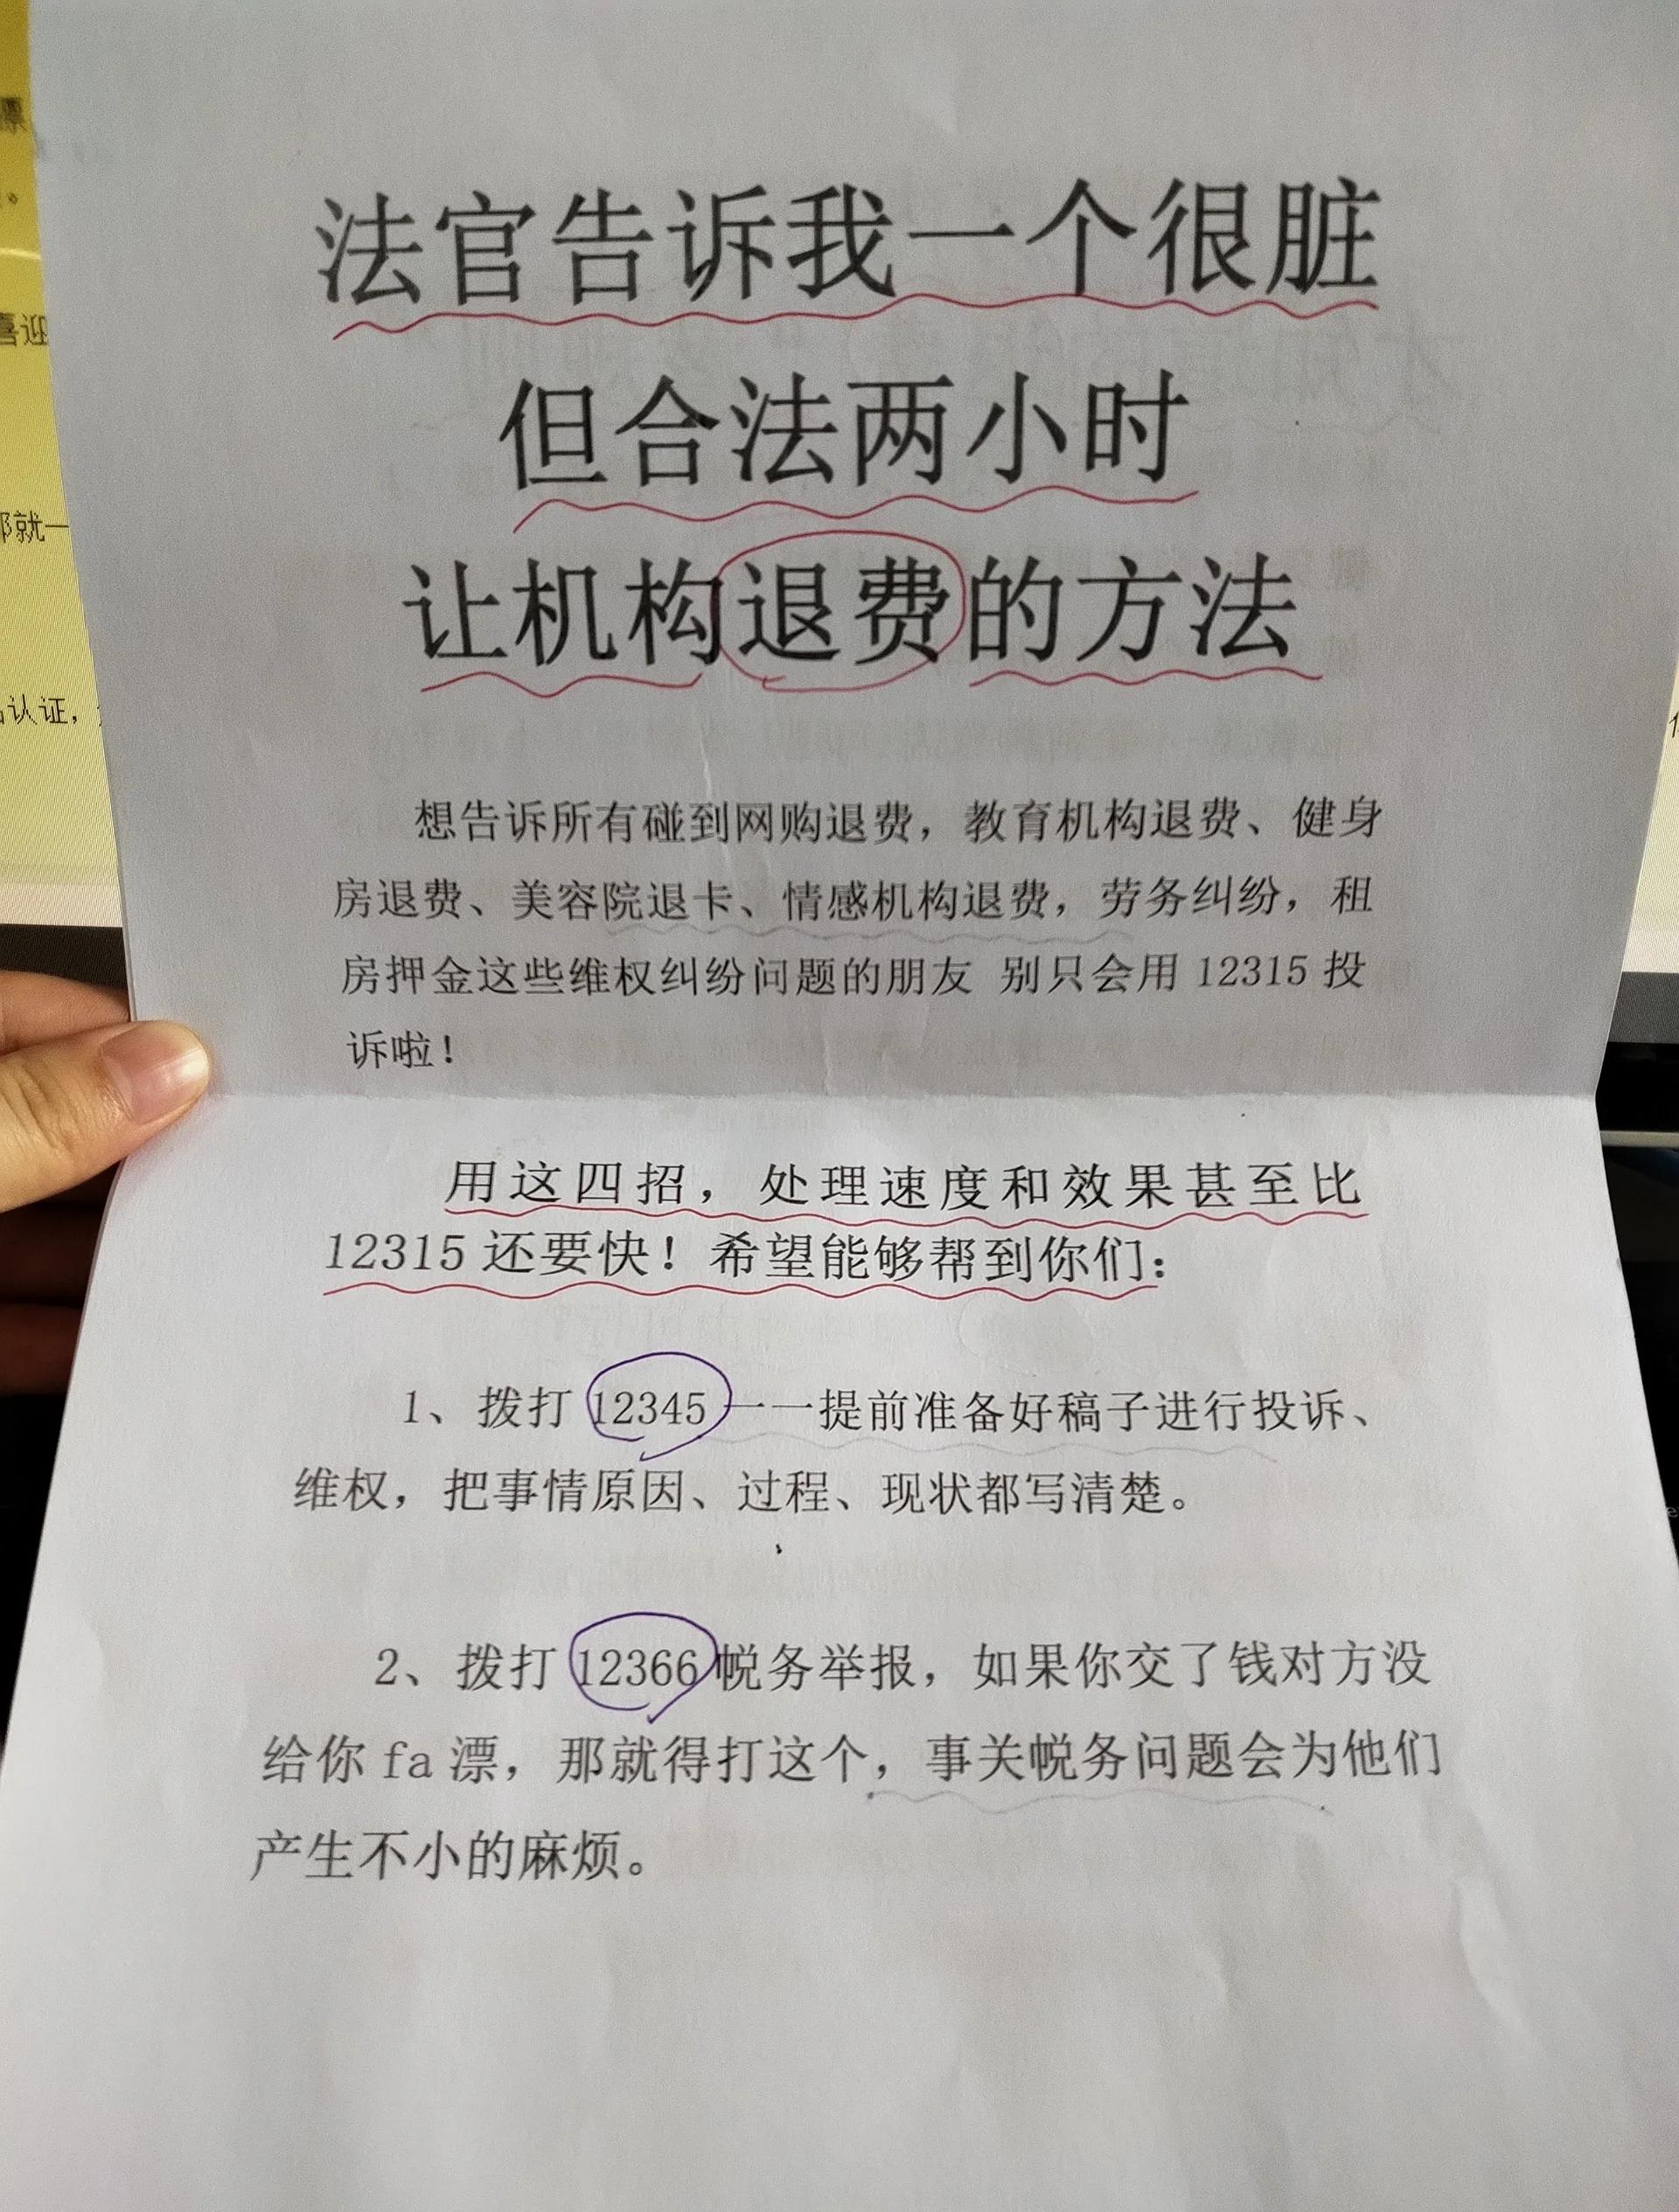 法官告诉我一个很脏
但合法两小时
让机构退费的方法
想告诉所有碰到网购退费，教育机构退费、健身
房退费、美容院退卡、情感机构退费，劳务纠纷，租
房押金这些维权纠纷问题的朋友 别只会用 12315 投
诉啦！
用这四招，处理速度和效果甚至比
12315 还要快！希望能够帮到你们：
1、拨打 12345 一一提前准备好稿子进行投诉、
维权，把事情原因、过程、现状都写清楚。
2、拨打 12366 帨务举报，如果你交了钱对方没
给你 fa 漂，那就得打这个，事关帨务问题会为他们
产生不小的麻烦。
喜迎
那就一
认证，